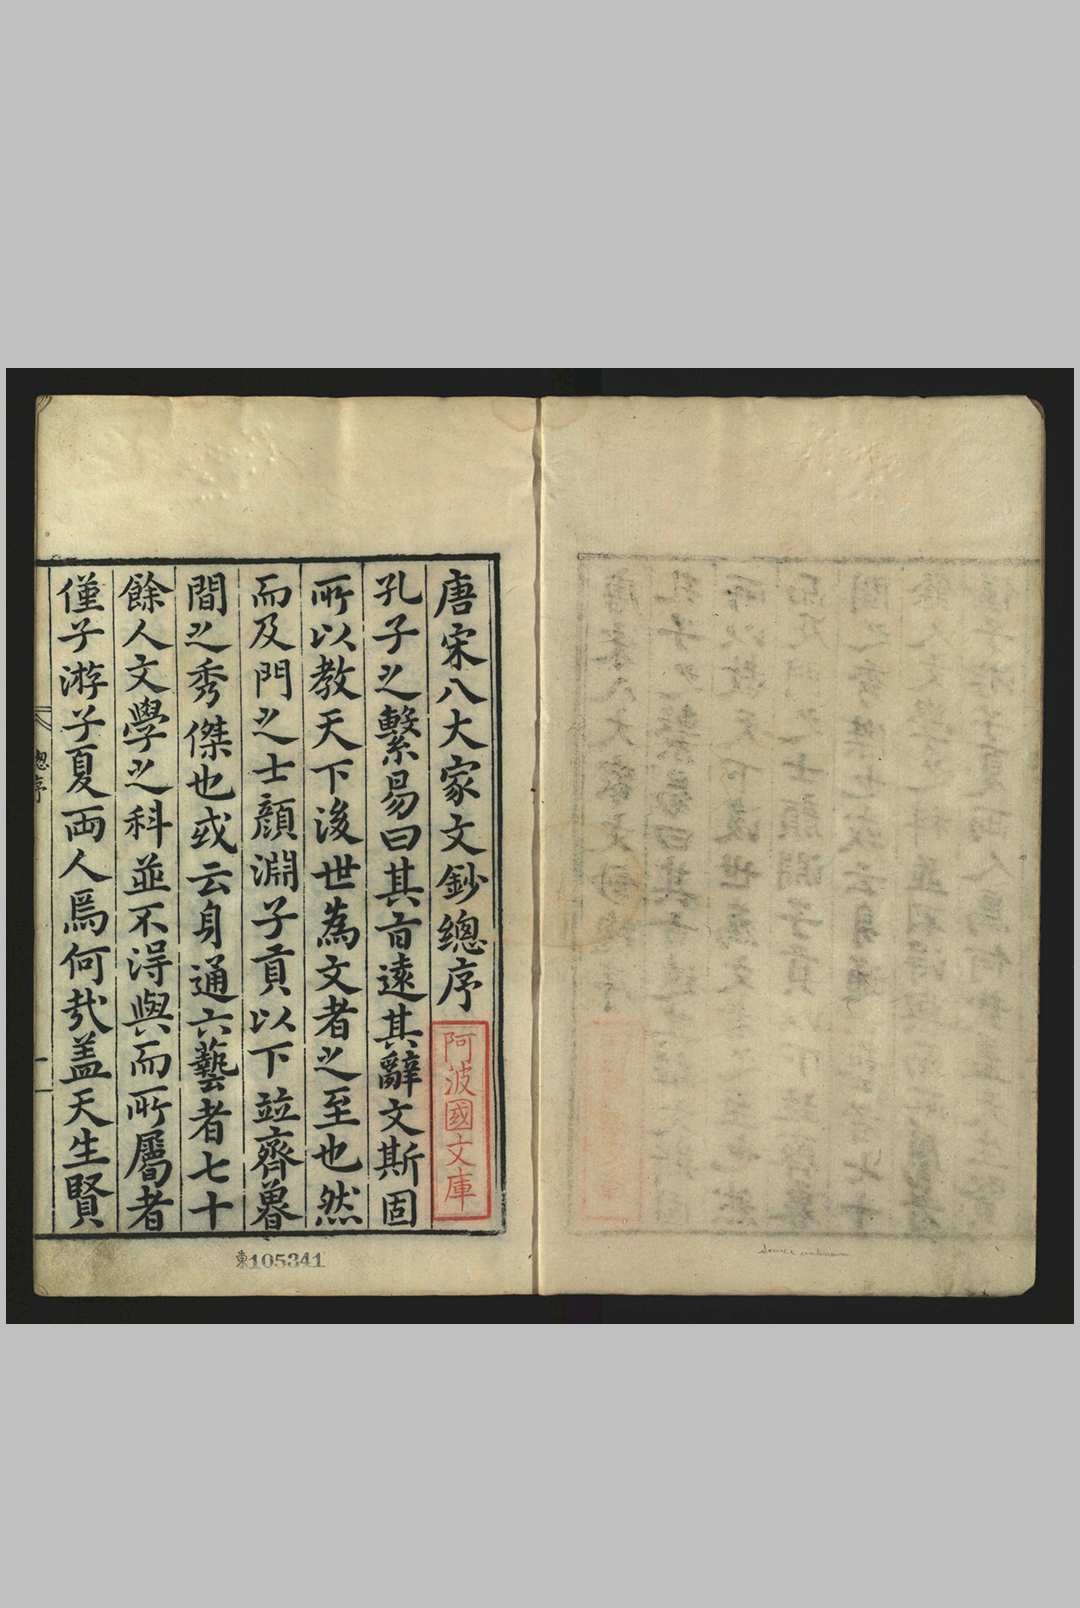 唐宋八大家文鈔總序
阿波國文庫
孔子之繫易曰其㫖遠其辭文斯固
所以教天下後世為文者之至也然
而及門之士顔淵子貢以下竝齊魯
間之秀傑也或云身通六藝者七十
餘人文學之科並不淂與而所屬者
僅子游子夏兩人焉何㢤盖天生賢
總序
一
東105341